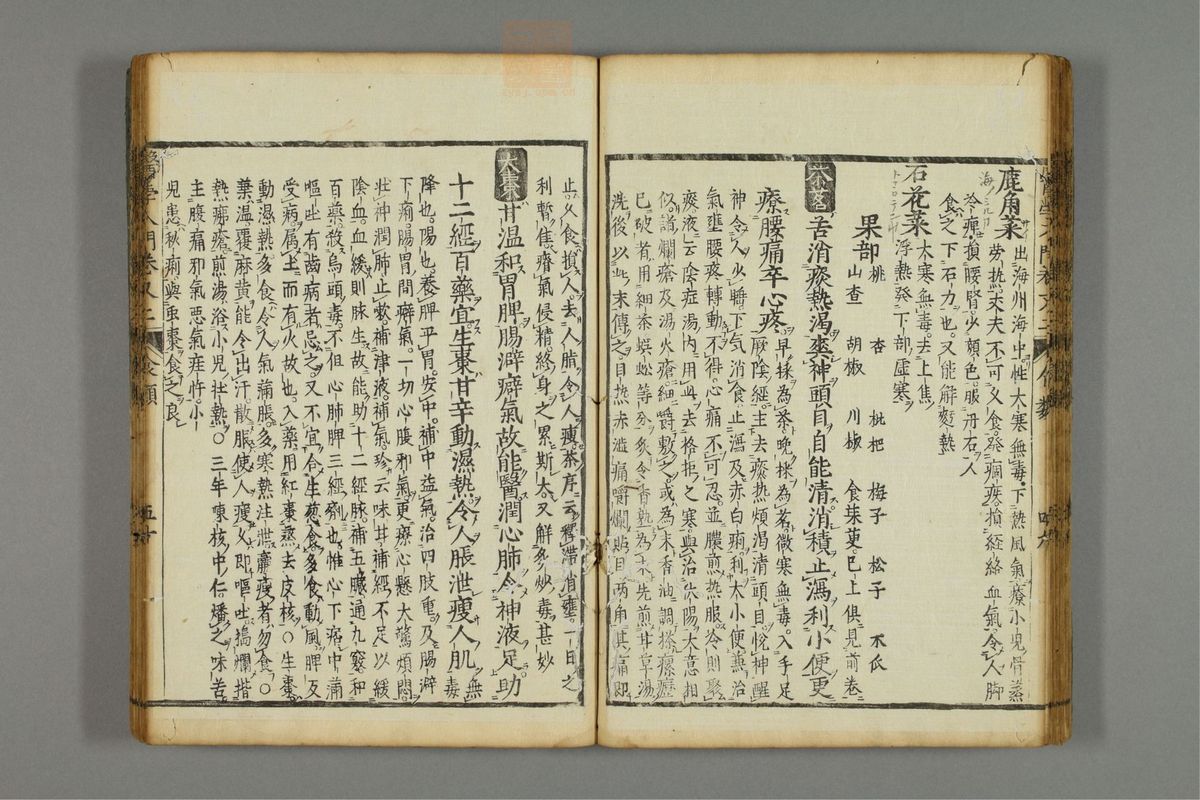 鹿角菜 出海州海中性大寒無毒下熱風氣療小兒骨蒸
勞熱丈夫不可久食發痼疾損經絡血氣令人脚
冷痺損腰腎少顏色服丹石人
食之下石力也又能解麪熱
石花菜 大寒無毒去上焦
浮熱發下部虛寒
果部 桃 杏 枇杷 梅子 松子 木瓜
山查 胡椒 川椒 食茱萸已上俱見前卷
茶茗 苦消痰熱渴爽神頭目自能清消積止瀉利小便更
療腰痛卒心疼 早採為茶晚採為茗微寒無毒入手足
厥陰經主去痰热煩渴清頭目悅神醒
神令人少睡下气消食止瀉及赤白痢利大小便兼治
氣壅腰疼轉動不得心痛不可忍並膿煎热服冷則聚
痰液云陰症湯內用此去格拒之寒與治伏陽大意相
似諸爛瘡及湯火瘡細嚼敷之或為末香油調搽瘰癧
已破者用細茶蜈蚣等分炙令香熟為末先煎甘草湯
洗後以此末傅之目热赤澁痛嚼爛貼目兩角其痛即
止久食損人去人脂令人瘦茶序云釋滯消壅一日之
利暫隹瘠氣侵精終身之累斯大又解多炒毒甚妙
大棗 甘温和胃脾腸澼癖氣故能醫潤心肺令神液足助
十二經百藥宜生棗甘辛動濕熱令人脹泄瘦人肌 無毒
降也陽也養脾平胃安中補中益氣治四肢重及腸澼
下痢腸胃間癖氣一切心腹邪氣更療心懸大驚煩悶
壯神潤肺止嗽補津液補氣珍云味甘補經不足以緩
陰血血緩則脉生故能助十二經脉補五臓通九竅和
百藥殺烏頭毒不但心肺脾三經劑也惟心下痞中滿
嘔吐有齒病者忌之又不宜合生葱食多食動風脾反
受病属土而有火故也入藥用紅棗蒸去皮核○生棗
動濕熱多食令人氣滿脹多寒熱注泄羸瘦者勿食○
葉温覆麻黄能令出汗散服使人瘦久即嘔吐搗爛揩
熱痱瘡煎湯浴小兒壯熱○三年陳核中仁燔之味苦
主腹痛邪氣惡氣疰忤小
兒患秋痢與虫棗食之良